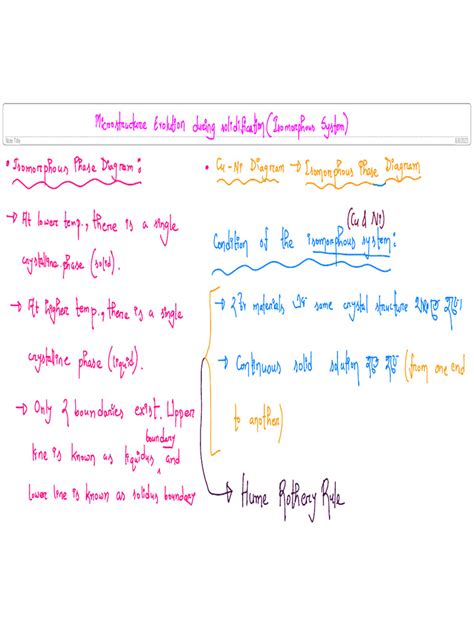 Microstructure Evolution during solidification (Isomorphous System)
Note Title
• Isomorphous Phase Diagram :
→ At lower temp., there is a single
crystalline phase (solid).
→ At higher temp., there is a single
crystalline phase (liquid).
→ Only 2 boundaries exist. Upper
line is known as liquidus boundary and
lower line is known as solidus boundary
• Cu-Ni Diagram → Isomorphous Phase Diagram
(Cu & Ni)
Condition of the isomorphous system :
→ 2 materials same crystal structure হবে
→ Continuous solid solution হতে হবে (from one end
to another)
→ Hume Rothery Rule